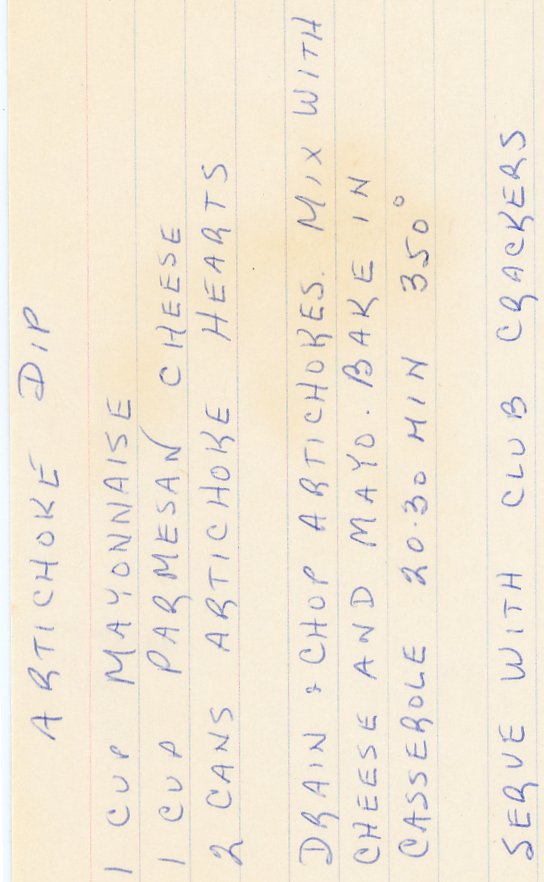 ARTICHOKE DIP
1 CUP MAYONNAISE
1 CUP PARMESAN CHEESE
2 CANS ARTICHOKE HEARTS
DRAIN & CHOP ARTICHOKES. MIX WITH
CHEESE AND MAYO. BAKE IN
CASSEROLE 20-30 MIN 350°
SERVE WITH CLUB CRACKERS